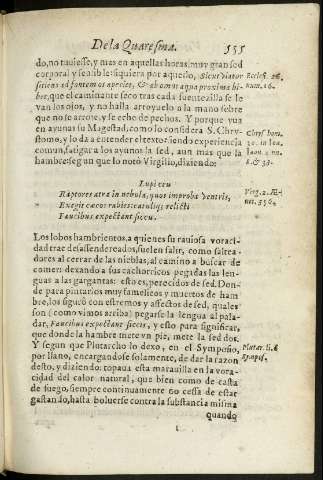 De la Quaresma. 555
do, no tuuiesse, y mas en aquellas horas, muy gran sed
corporal y sensible: siquiera por aquello, Sicut viator
sitiens ad fontem os aperiet, & ab omni aqua proxima bi-
bet, que el caminante seco tras cada fuentezilla se le
van los ojos, y no halla arroyuelo a la mano sobre
que no se arroje, y se eche de pechos. Y porque yua
en ayunas su Magestad, como lo considera S. Chry-
stomo, y lo da a entender el texto: siendo experiencia
comun, fatigar a los ayunos la sed, aun mas que la
hambre: segun que lo notò Virgilio, diziendo:
Ecclesi. 26.
num. 16.
Chrys. hom.
30. in Ioa.
Lupi ceu
Raptores atra in nebula, quos improba ventris,
Exegit cæcos rabies: catulíq; relicti
Faucibus expectant siccis.
Virg. 2. Æ-
nei.
Los lobos hambrientos, a quienes su rauiosa voraci-
dad trae desassendereados, suelen salir, como saltea-
dores al cerrar de las nieblas, al camino a buscar de
comer: dexando a sus cachorricos pegadas las len-
guas a las gargantas: esto es, perecidos de sed. Don-
de para pintarlos muy famelicos y muertos de ham-
bre, los siguiò con estremos y affectos de sed, quales
son (como vimos arriba) pegarse la lengua al pala-
dar, Faucibus expectant siccis, y esto para significar,
que donde la hambre mete vn pie, mete la sed dos.
Y segun que Plutarcho lo dexo, en el Symposio,
por llano, encargandose solamente, de dar la razon
desto, y diziendo: topaua esta marauilla en la vora-
cidad del calor natural, que bien como de casta
de fuego, siempre continuamente no cessa de estar
gastando, hasta boluerse contra la substancia misma
Plutar. li. 6.
quando